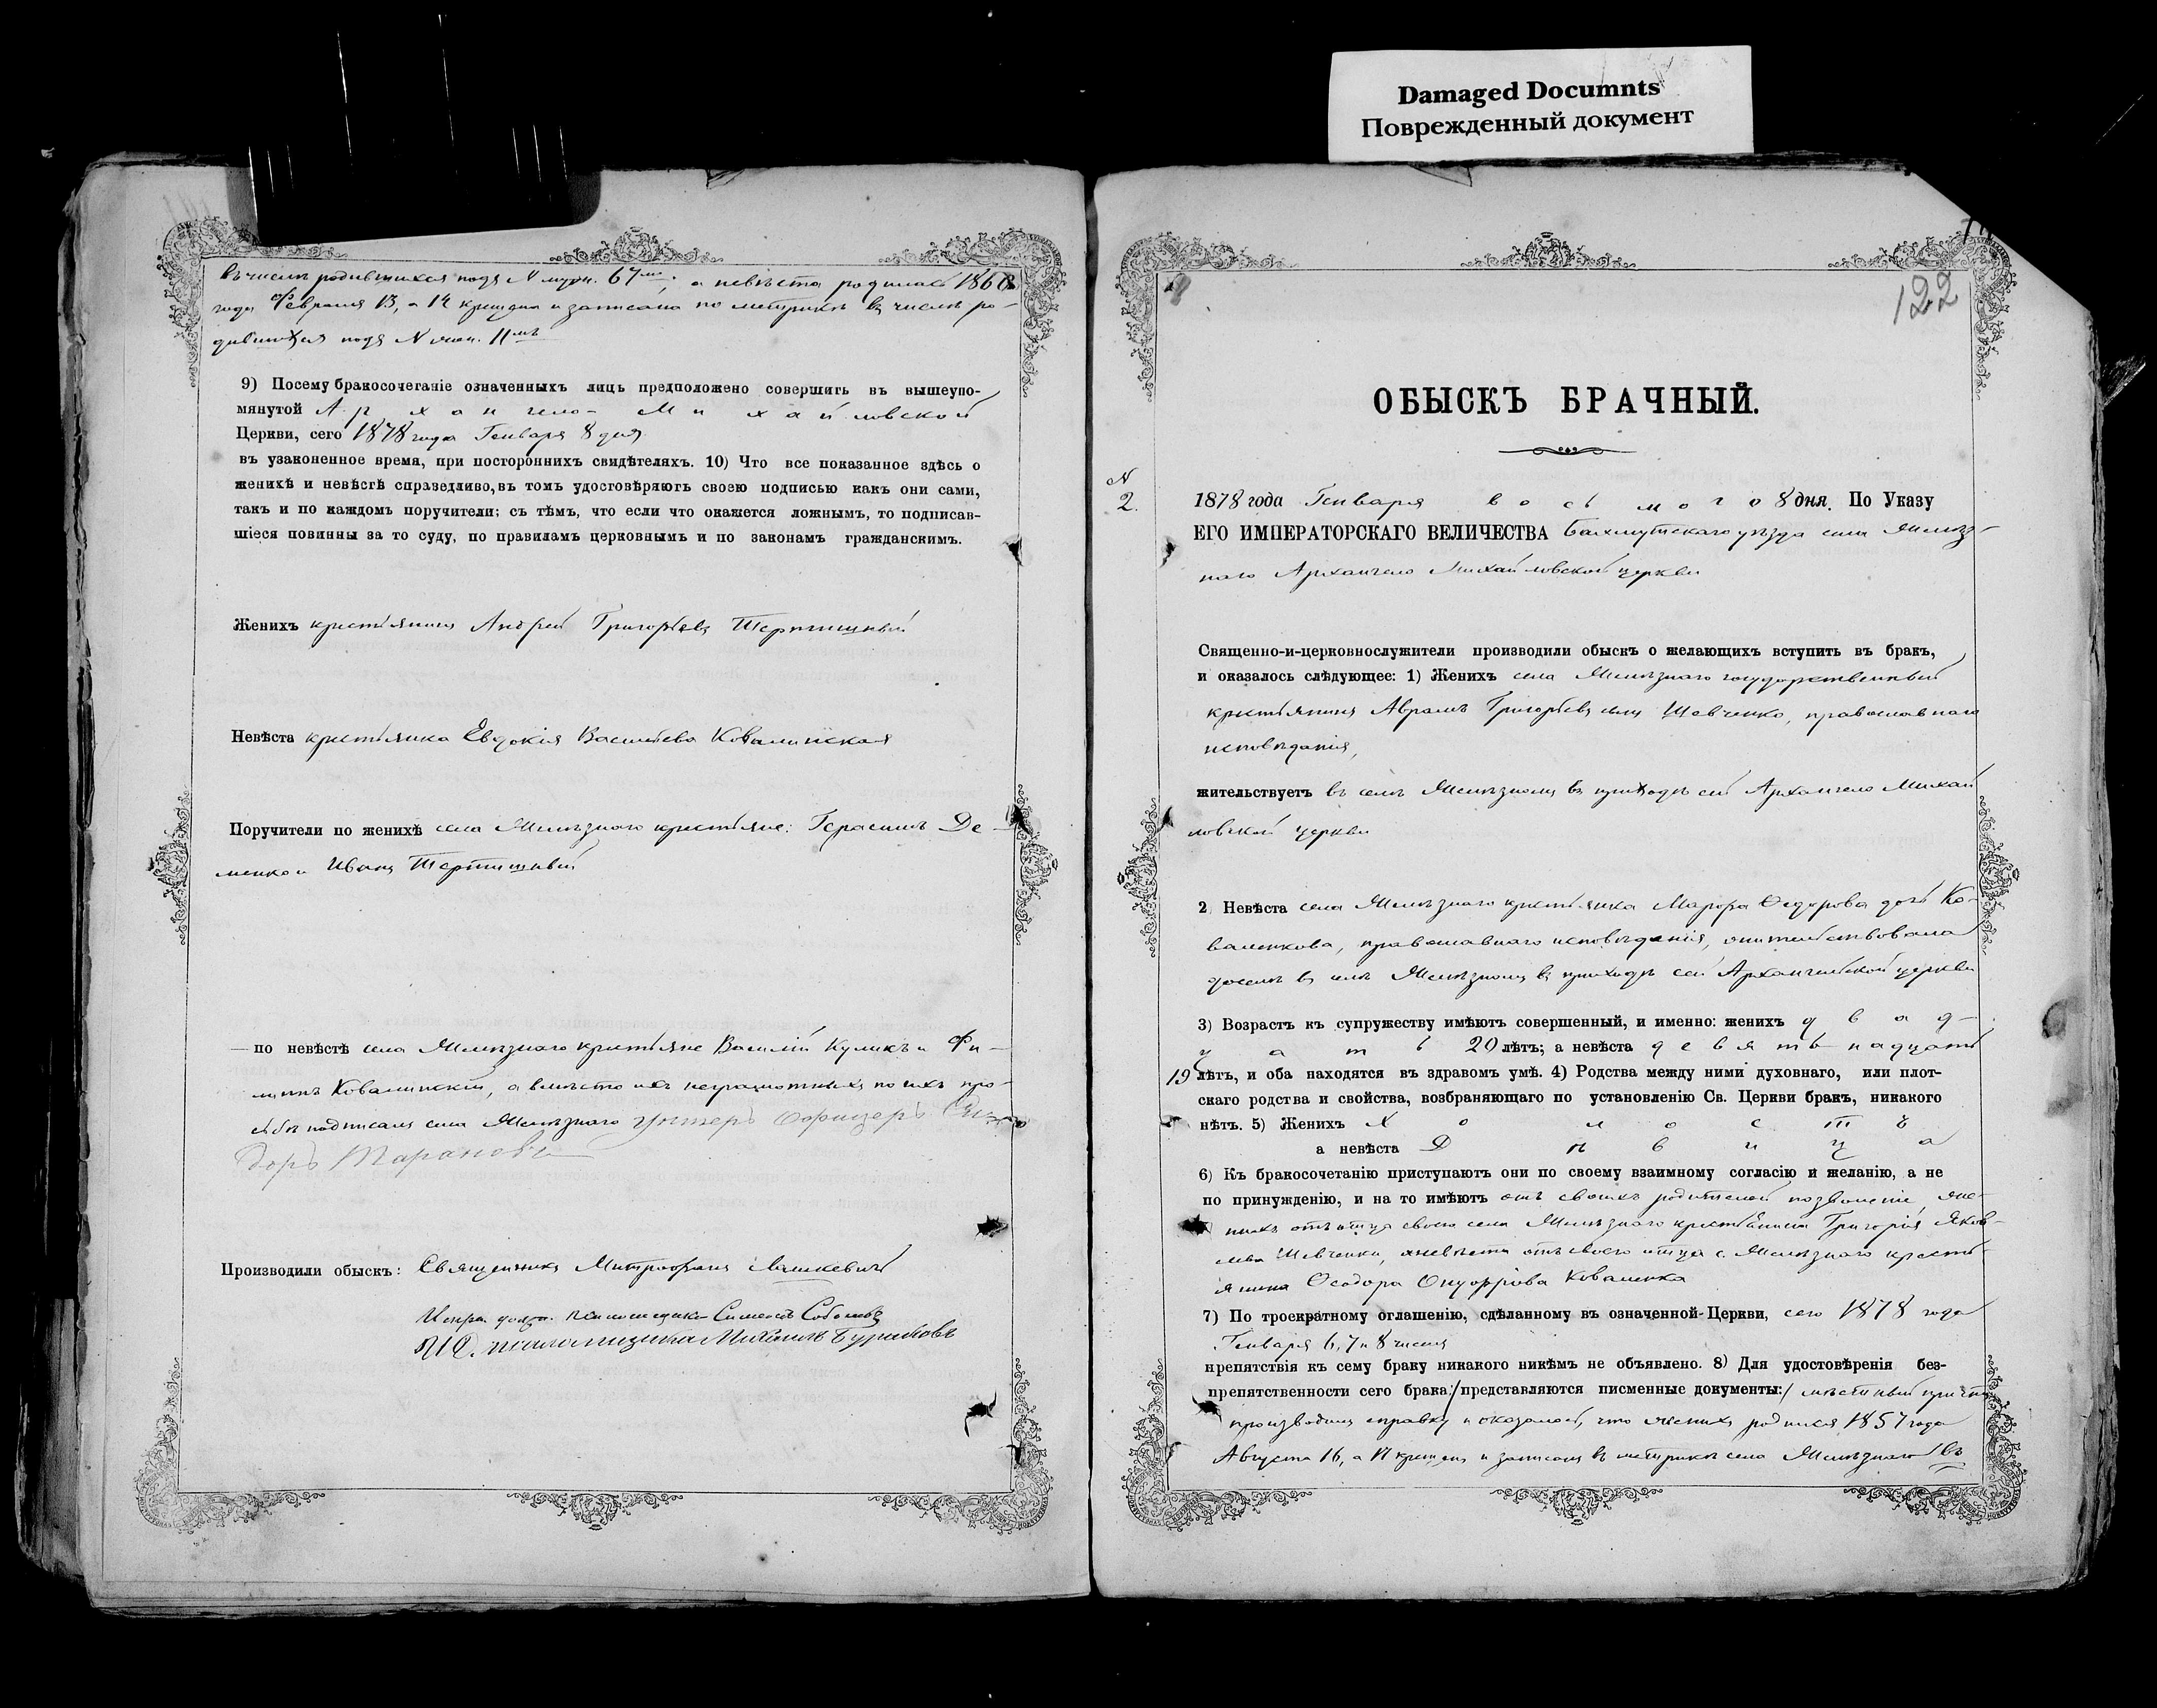 Damaged Documnts
Поврежденный документ
въ числѣ родившихся подъ N муж. 67мъ, а невѣста родилась 1860
года Февраля 13, а 14 крещена и записана по метрикѣ въ числѣ ро-
дившихся подъ N жен. 11мъ
9) Посему бракосочетаніе означенныхъ лицъ предположено совершить въ вышеупо-
мянутой Архангело-Михайловской
Церкви, сего 1878 года Генваря 8 дня
въ узаконенное время, при постороннихъ свидѣтеляхъ. 10) Что все показанное здѣсь о
женихѣ и невѣстѣ справедливо, въ томъ удостовѣряютъ своею подписью какъ они сами,
такъ и по каждомъ поручители; съ тѣмъ, что если что окажется ложнымъ, то подписав-
шіеся повинны за то суду, по правиламъ церковнымъ и по законамъ гражданскимъ.
Женихъ крестьянинъ Андрей Григорьевъ
Невѣста крестьянка Евдокія Васильева Ковалинская
Поручители по женихѣ села Желѣзнаго крестьяне: Герасимъ Де-
менко и Иванъ
по невѣстѣ села Желѣзнаго крестьяне Василій Куликъ и Фи-
липпъ Ковалинскій, а вмѣсто ихъ неграмотныхъ по ихъ про-
сьбѣ подписалъ села Желѣзнаго унтеръ офицеръ
доръ Тарановъ
Производили обыскъ: Священникъ Митрофанъ Лашкевичъ
Испр. долж. псаломщика Симеонъ Соболевъ
И.Д. псаломщика Михаилъ
122
ОБЫСКЪ БРАЧНЫЙ.
N
2.
1878 года Генваря восьмого 8 дня. По Указу
ЕГО ИМПЕРАТОРСКАГО ВЕЛИЧЕСТВА Бахмутскаго уѣзда села Желѣз-
наго Архангело Михайловской церкви
Священно-и-церковнослужители производили обыскъ о желающихъ вступить въ бракъ,
и оказалось слѣдующее: 1) Женихъ села Желѣзнаго государственный
крестьянинъ Аврамъ Григорьевъ сынъ Шевченко, православнаго
исповѣданія,
жительствуетъ въ селѣ Желѣзномъ въ приходѣ сей Архангело Михай
ловской церкви
2 Невѣста села Желѣзнаго крестьянка Марфа Федорова дочь Ко-
валенкова, православнаго исповѣданія, жительствовала
доселѣ въ селѣ Желѣзномъ въ приходѣ сей Архангельской церкви
3) Возрастъ къ супружеству имѣютъ совершенный, и именно: женихъ двад-
цать 20 лѣтъ; а невѣста девятьнадцать
19 лѣтъ, и оба находятся въ здравомъ умѣ. 4) Родства между ними духовнаго, или плот-
скаго родства и свойства, возбраняющаго по установленію Св. Церкви бракъ, никакого
нѣтъ. 5) Женихъ Холостъ
а невѣста Дѣвица
6) Къ бракосочетанію приступаютъ они по своему взаимному согласію и желанію, а не
по принужденію, и на то имѣютъ отъ своихъ родителей позволеніе, же-
нихъ отъ отца своего села Желѣзнаго крестьянина Григорія Яков-
лева Шевченки, а невѣста отъ своего отца с. Желѣзнаго кресть-
янина Феодора Онуфріева Коваленка
7) По троекратному оглашенію, сдѣланному въ означенной Церкви, сего 1878 года
Генваря 6, 7 и 8 числа
препятствія къ сему браку никакого никѣмъ не объявлено. 8) Для удостовѣренія без-
препятственности сего брака:/представляются писменные документы:/ мѣстный причтъ
производилъ справку и оказалось, что женихъ родился 1857 года
Августа 16, а 17 крещенъ и записанъ въ метрикѣ села Желѣзнаго въ